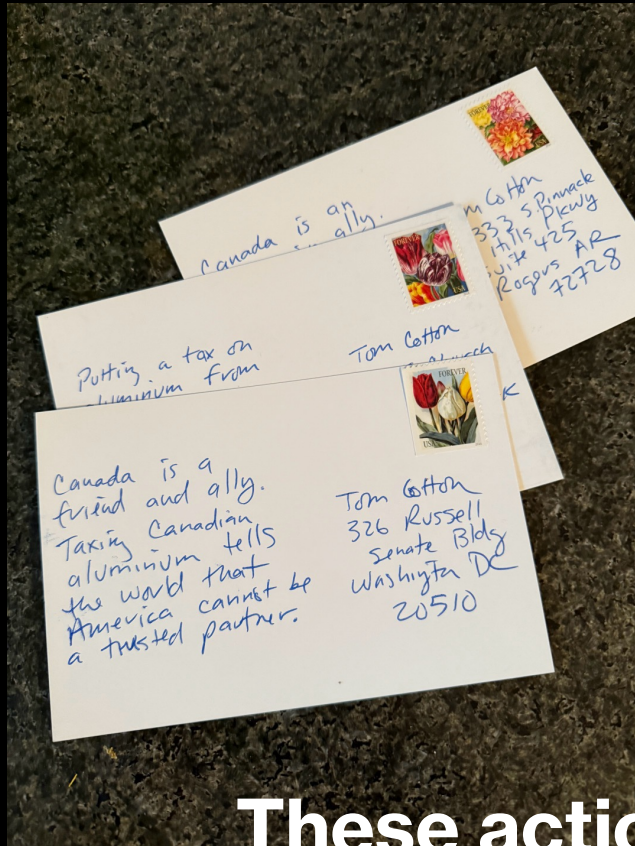 FOREVER
USA
Canada is an
ally.
m Cotton
333 S. Pinnacle
Hills Pkwy
uite 425
Rogers AR
72728
FOREVER
USA
Putting a tax on
aluminum from
Tom Cotton
FOREVER
USA
Canada is a
friend and ally.
Taxing Canadian
aluminium tells
the world that
America cannot be
a trusted partner.
Tom Cotton
326 Russell
Senate Bldg
Washington DC
20510
These actio